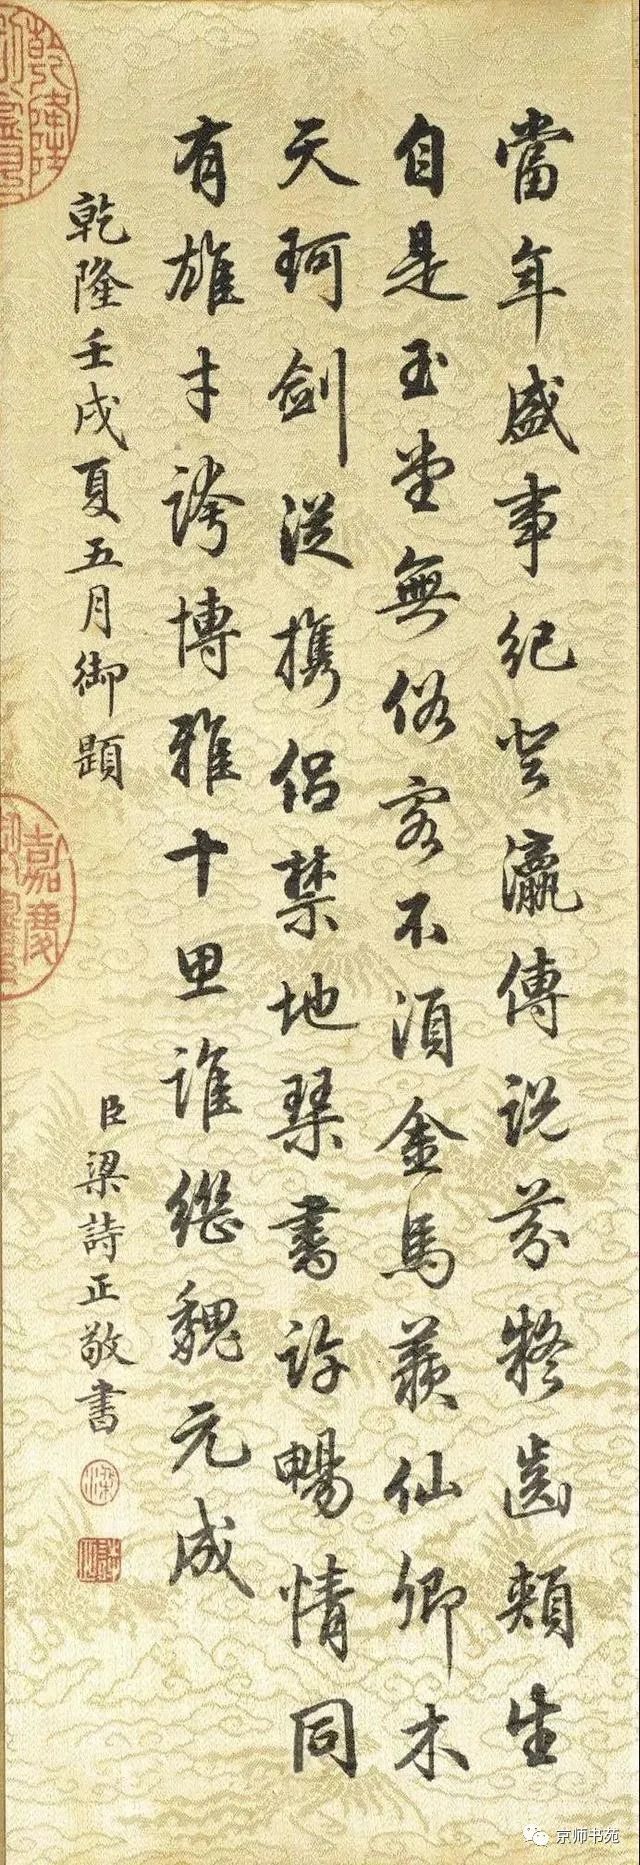 當年盛事紀登瀛傳説芬凝齒頰生
自是玉堂無俗客不須金馬羨仙卿木
天珂劍從携侣禁地琴書許暢情同
有雄才誇博雅十思誰繼魏元成
乾隆壬戌夏五月御題
臣梁詩正敬書
乾隆
嘉慶
京师书苑